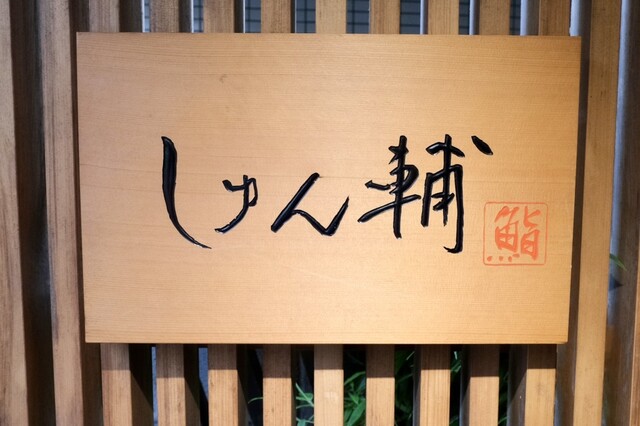 しゅん輔
鮨